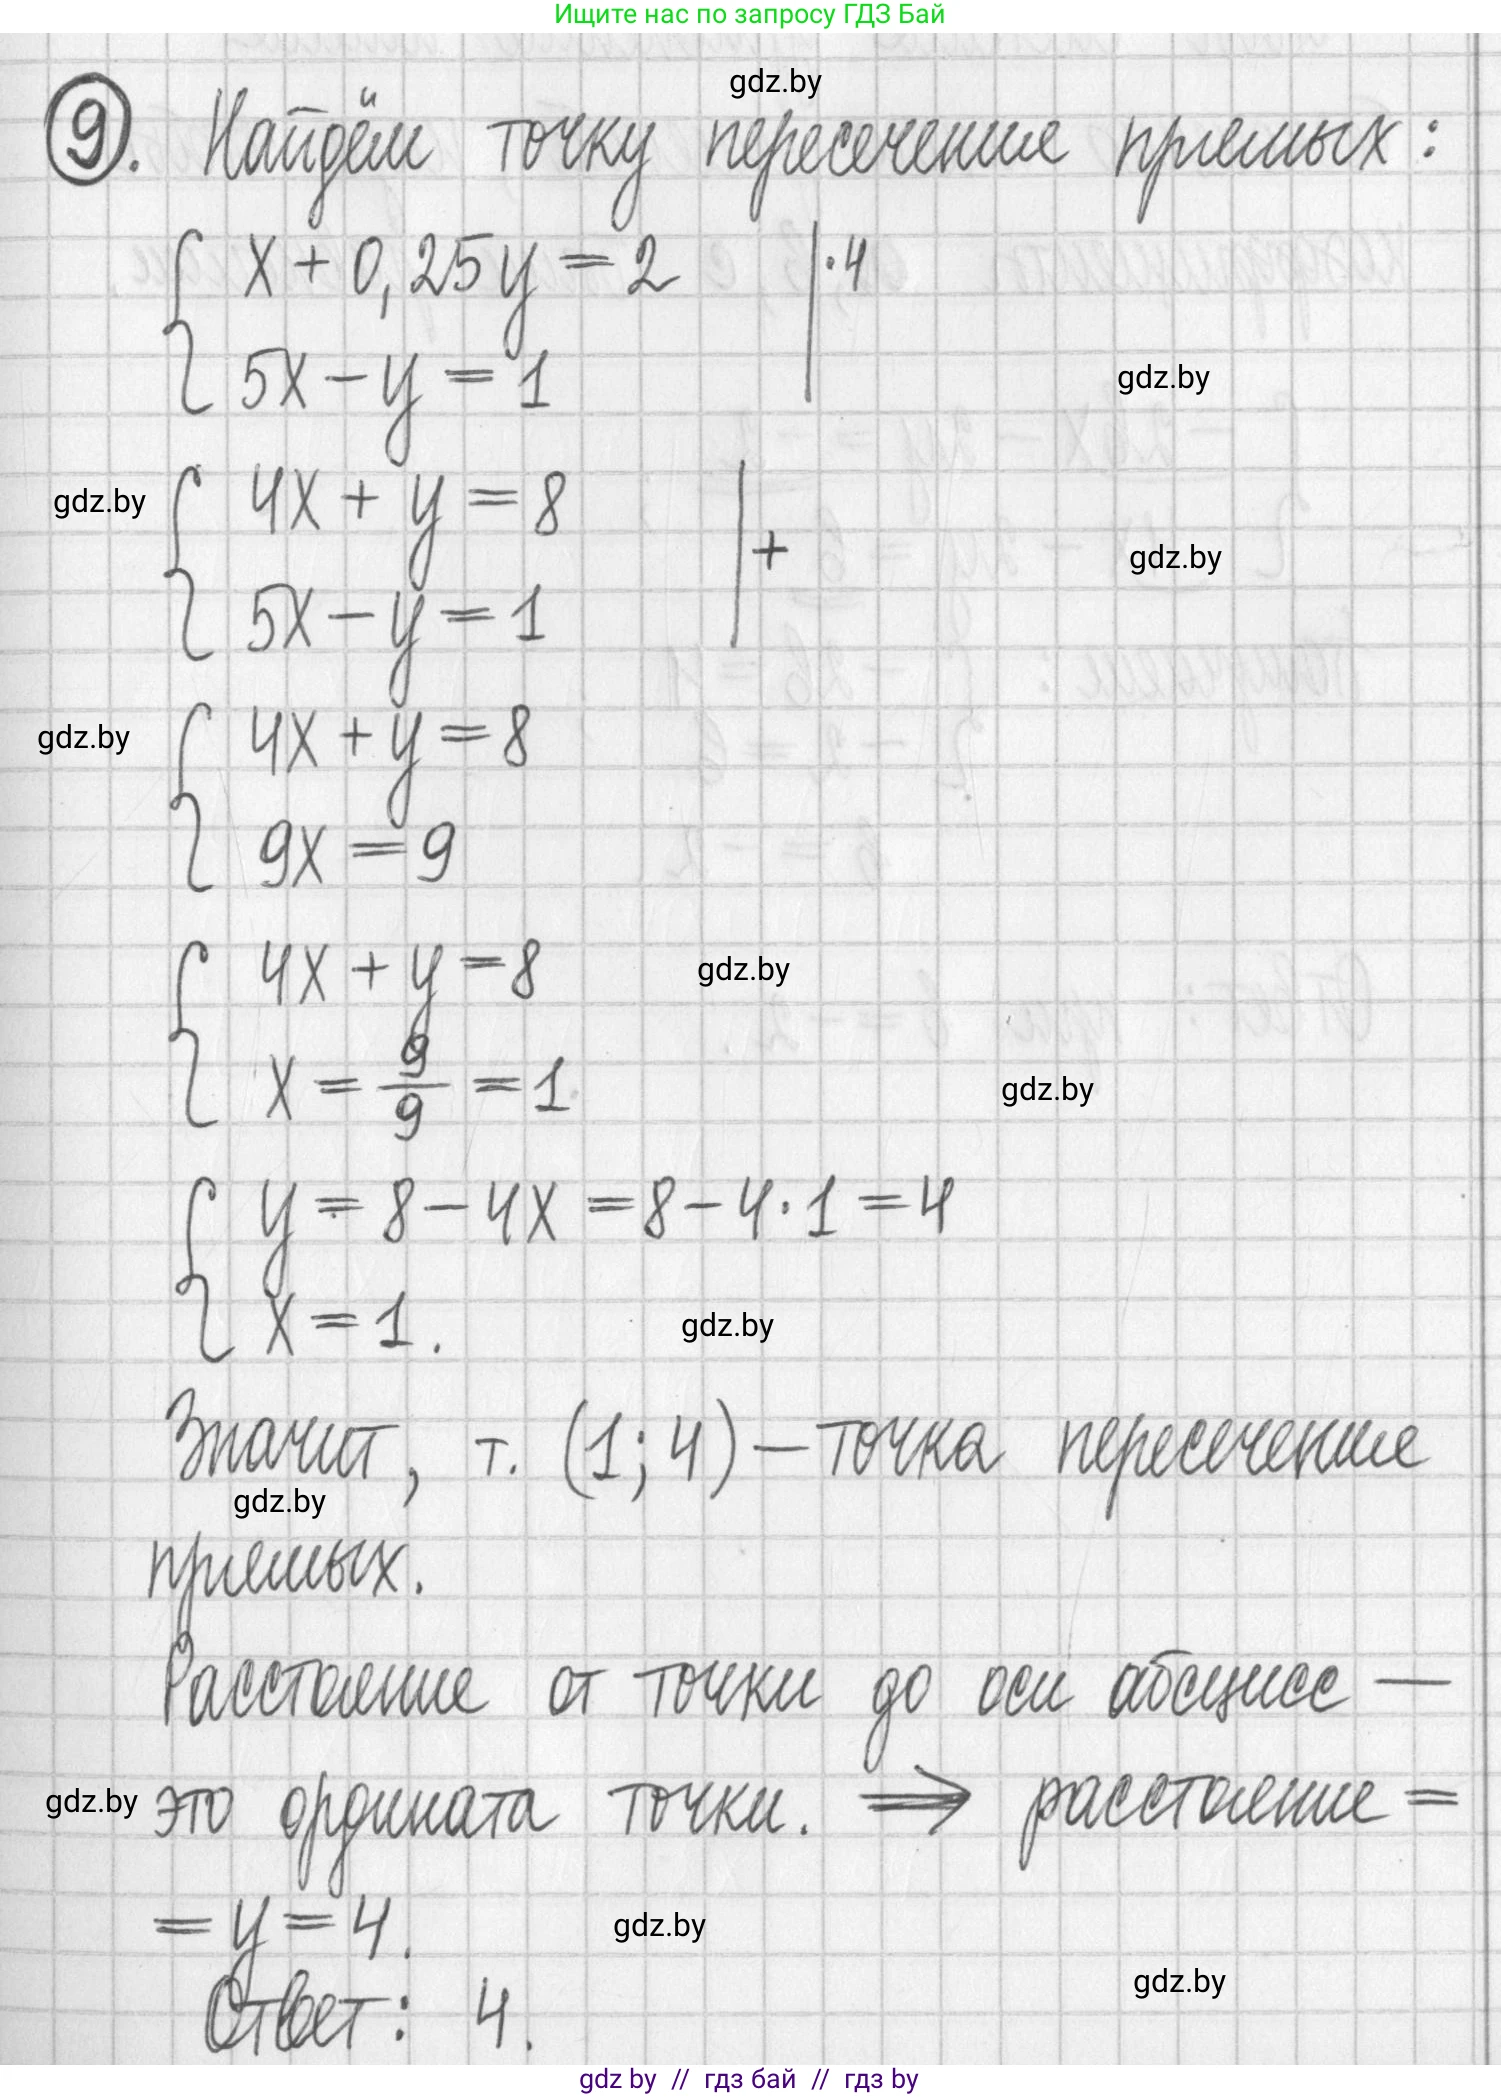 Ищите нас по запросу ГДЗ Бай
gdz.by
9. Найдём точку пересечение прямых:
x + 0,25y = 2 | ·4
5x - y = 1
gdz.by
4x + y = 8
gdz.by
| +
gdz.by
5x - y = 1
4x + y = 8
gdz.by
9x = 9
4x + y = 8
gdz.by
x = 9/9 = 1
gdz.by
y = 8 - 4x = 8 - 4·1 = 4
x = 1.
gdz.by
Значит, т. (1; 4) — точка пересечение
gdz.by
прямых.
Расстояние от точки до оси абсцисс —
gdz.by
это ордината точки. ⇒ расстояние =
= y = 4.
gdz.by
gdz.by
Ответ: 4.
gdz.by // гдз бай // гдз by